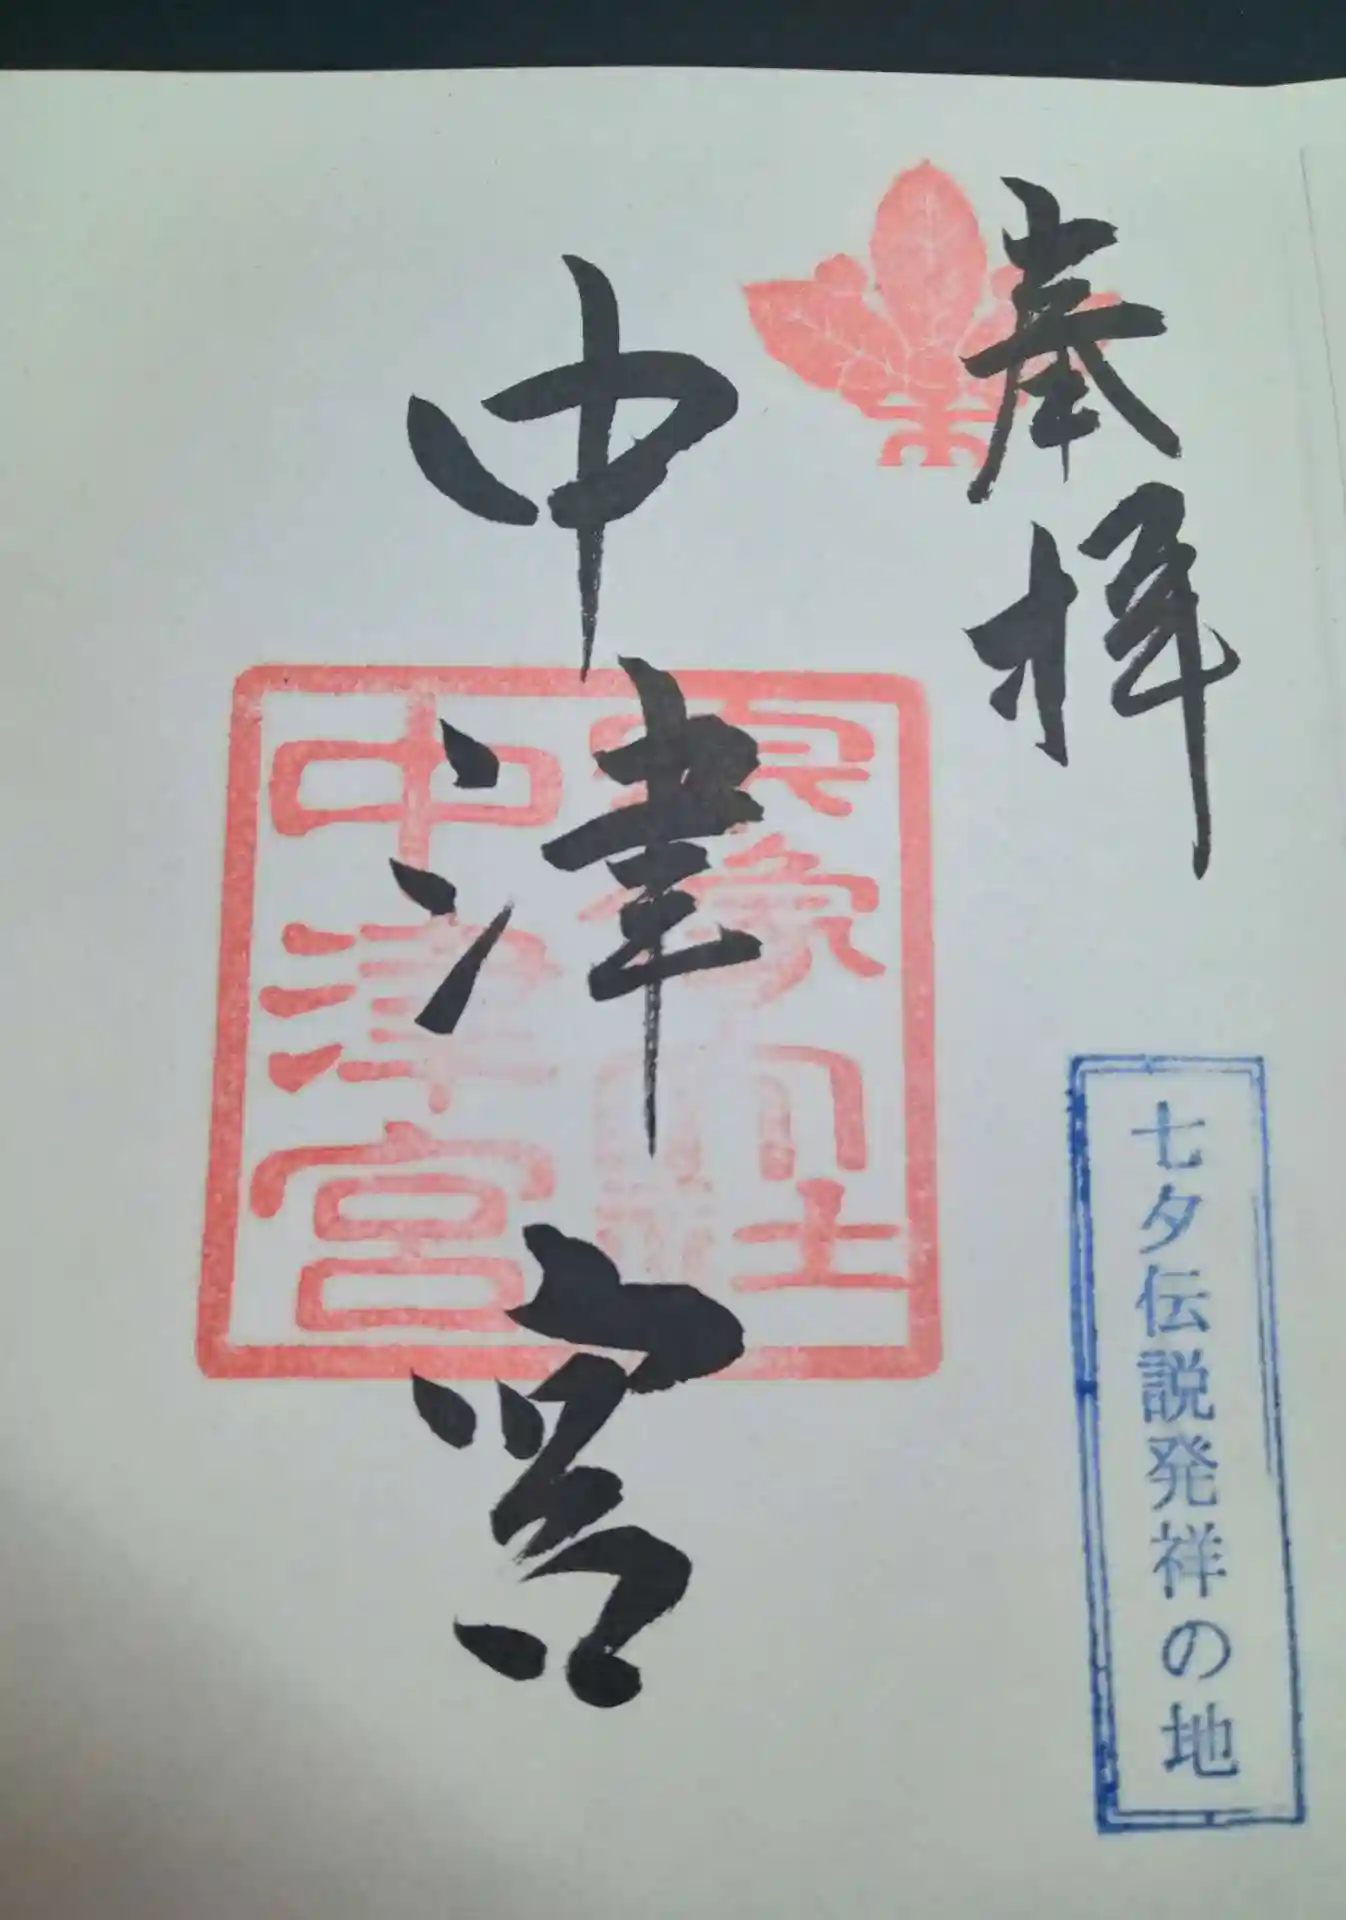 奉拝
中津宮
宗像大社
中津宮
七夕伝説発祥の地